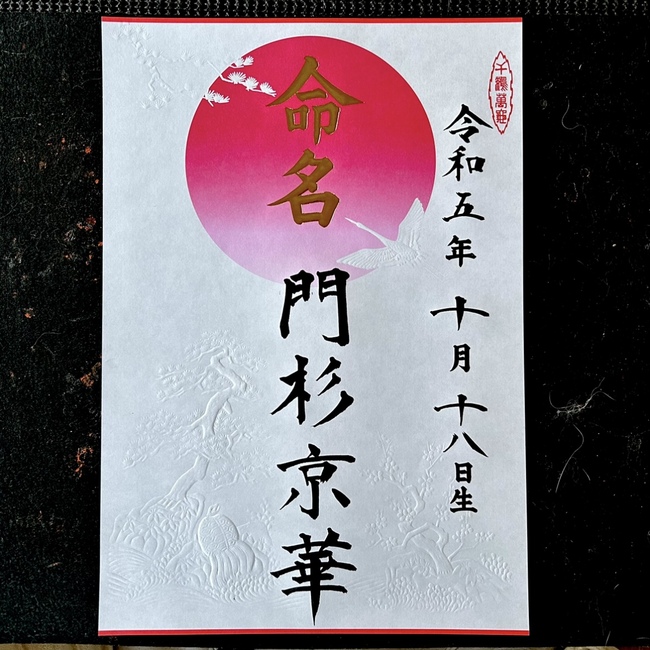 千鶴萬亀
令和五年 十月 十八日生
命名
門杉京華